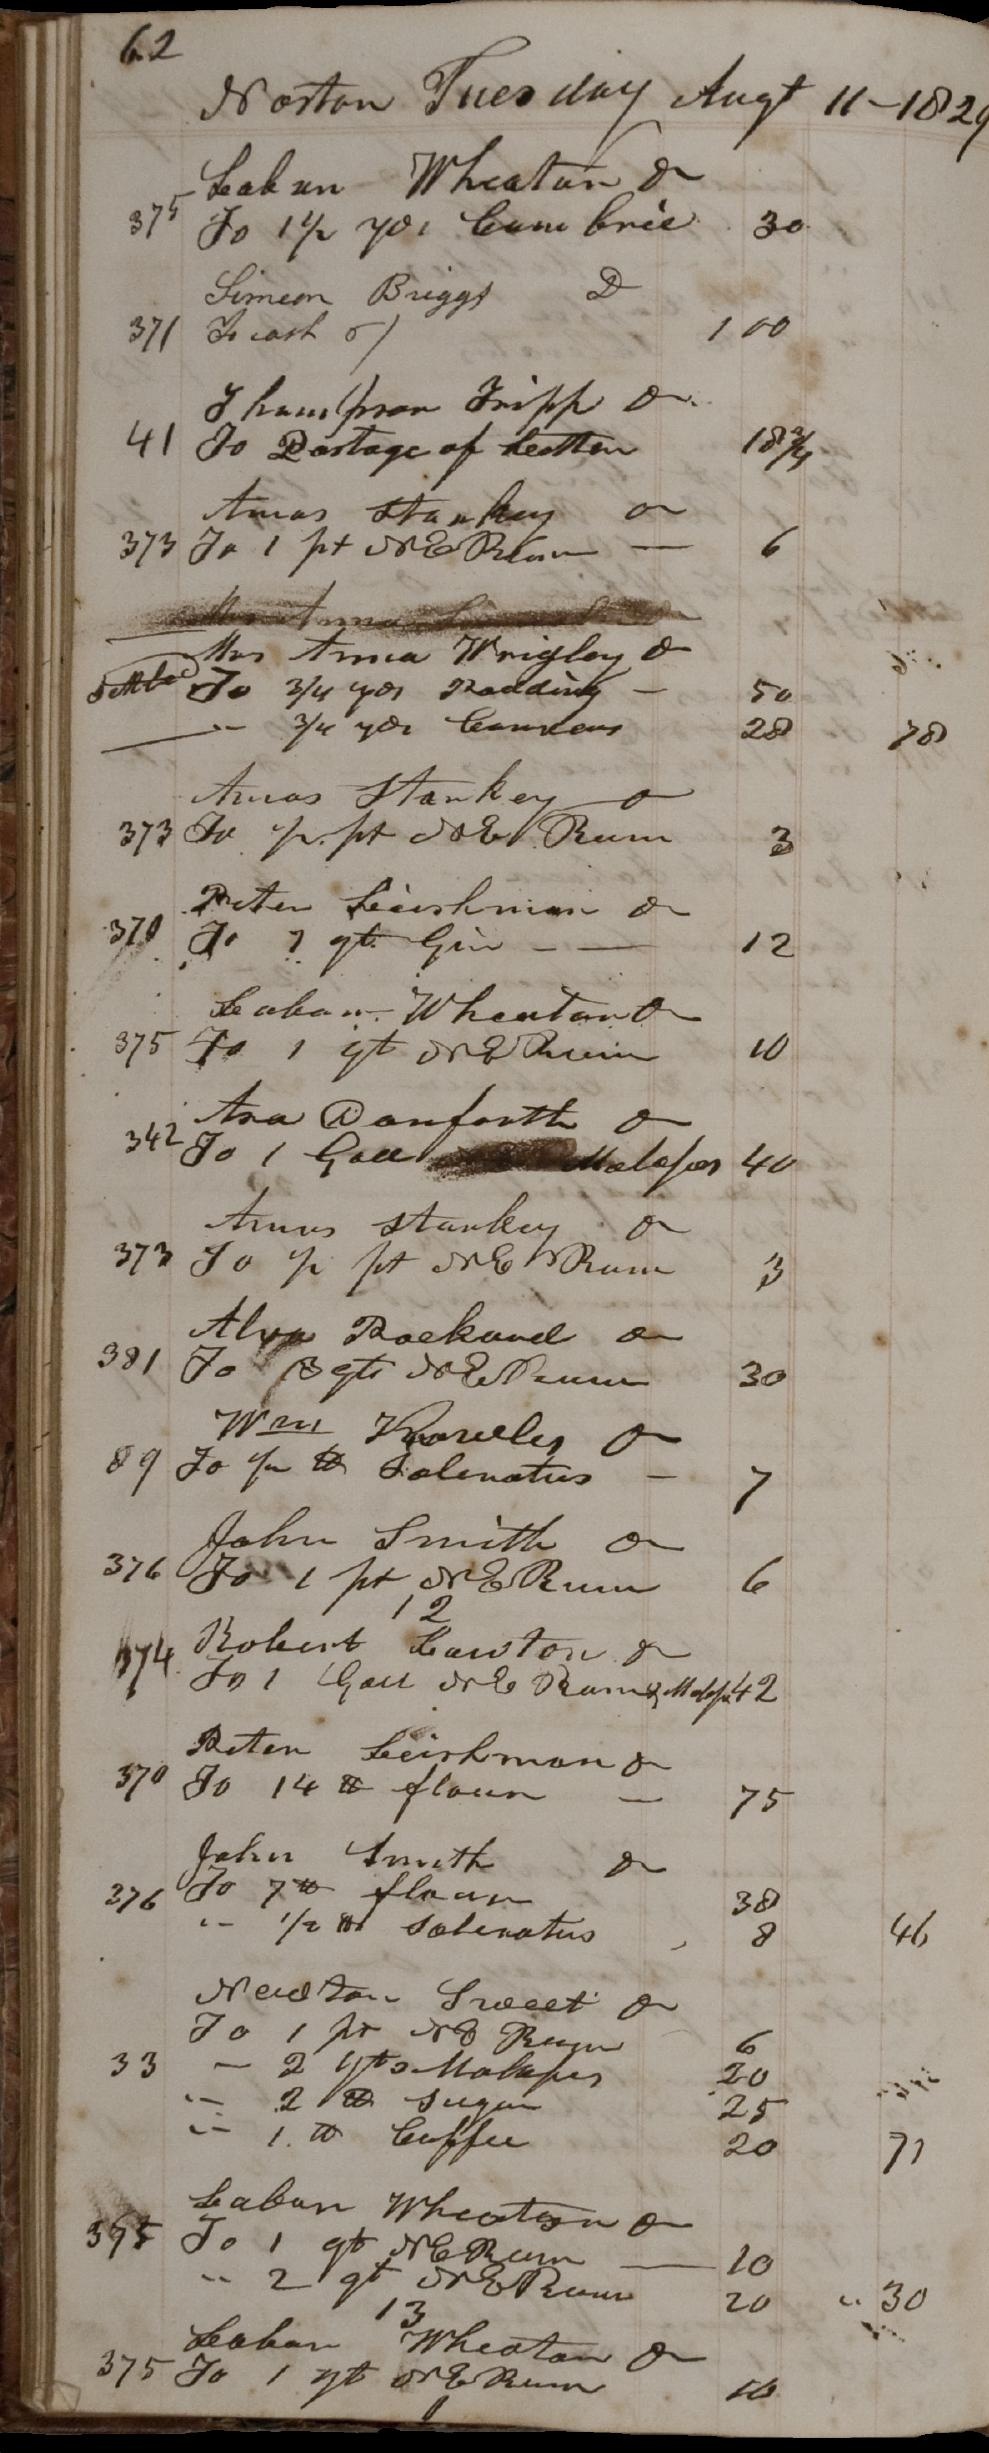 62
Norton Tuesday Augt 11 - 1829
Laban Wheaton Dr
375 To 1 1/2 yds Cambric 30
Simeon Briggs Dr
371 To cash 1 00
Thompson Tripp Dr
41 To Postage of Letter 18 3/4
Amos Stankey Dr
373 To 1 pt N E Rum — 6
Mrs Anna
Mrs Anna Wrigley Dr
Settled To 3/4 yds Padding — 50
" 3/4 yds Canvas 28 78
Amos Stankey Dr
373 To 1/2 pt N E Rum 3
Peter Leishman Dr
370 To 1 qt Gin — — 12
Laban Wheaton Dr
375 To 1 qt N E Rum 10
Asa Danforth Dr
342 To 1 Gall Molasses 40
Amos Stankey Dr
373 To 1/2 pt N E Rum 3
Alva Rockwood Dr
381 To 3 qts N E Rum 30
Wm Knowles Dr
89 To 1/2 lb Saleratus — 7
John Smith Dr
376 To 1 pt N E Rum 6
12
374 Robert Lawton Dr
To 1 Gall N E Rum & Molas 42
Peter Leishman Dr
370 To 14 lb flour — 75
John Smith Dr
376 To 7 lb flour 38
" 1/2 lb Saleratus 8 46
Newton Sweet Dr
To 1 pt N E Rum 6
33 — 2 qts Molasses 20
" 2 lb Sugar 25
" 1 lb Coffee 20 71
Laban Wheaton Dr
375 To 1 qt N E Rum — 10
" 2 qt N E Rum 20 " 30
13
Laban Wheaton Dr
375 To 1 qt N E Rum 10